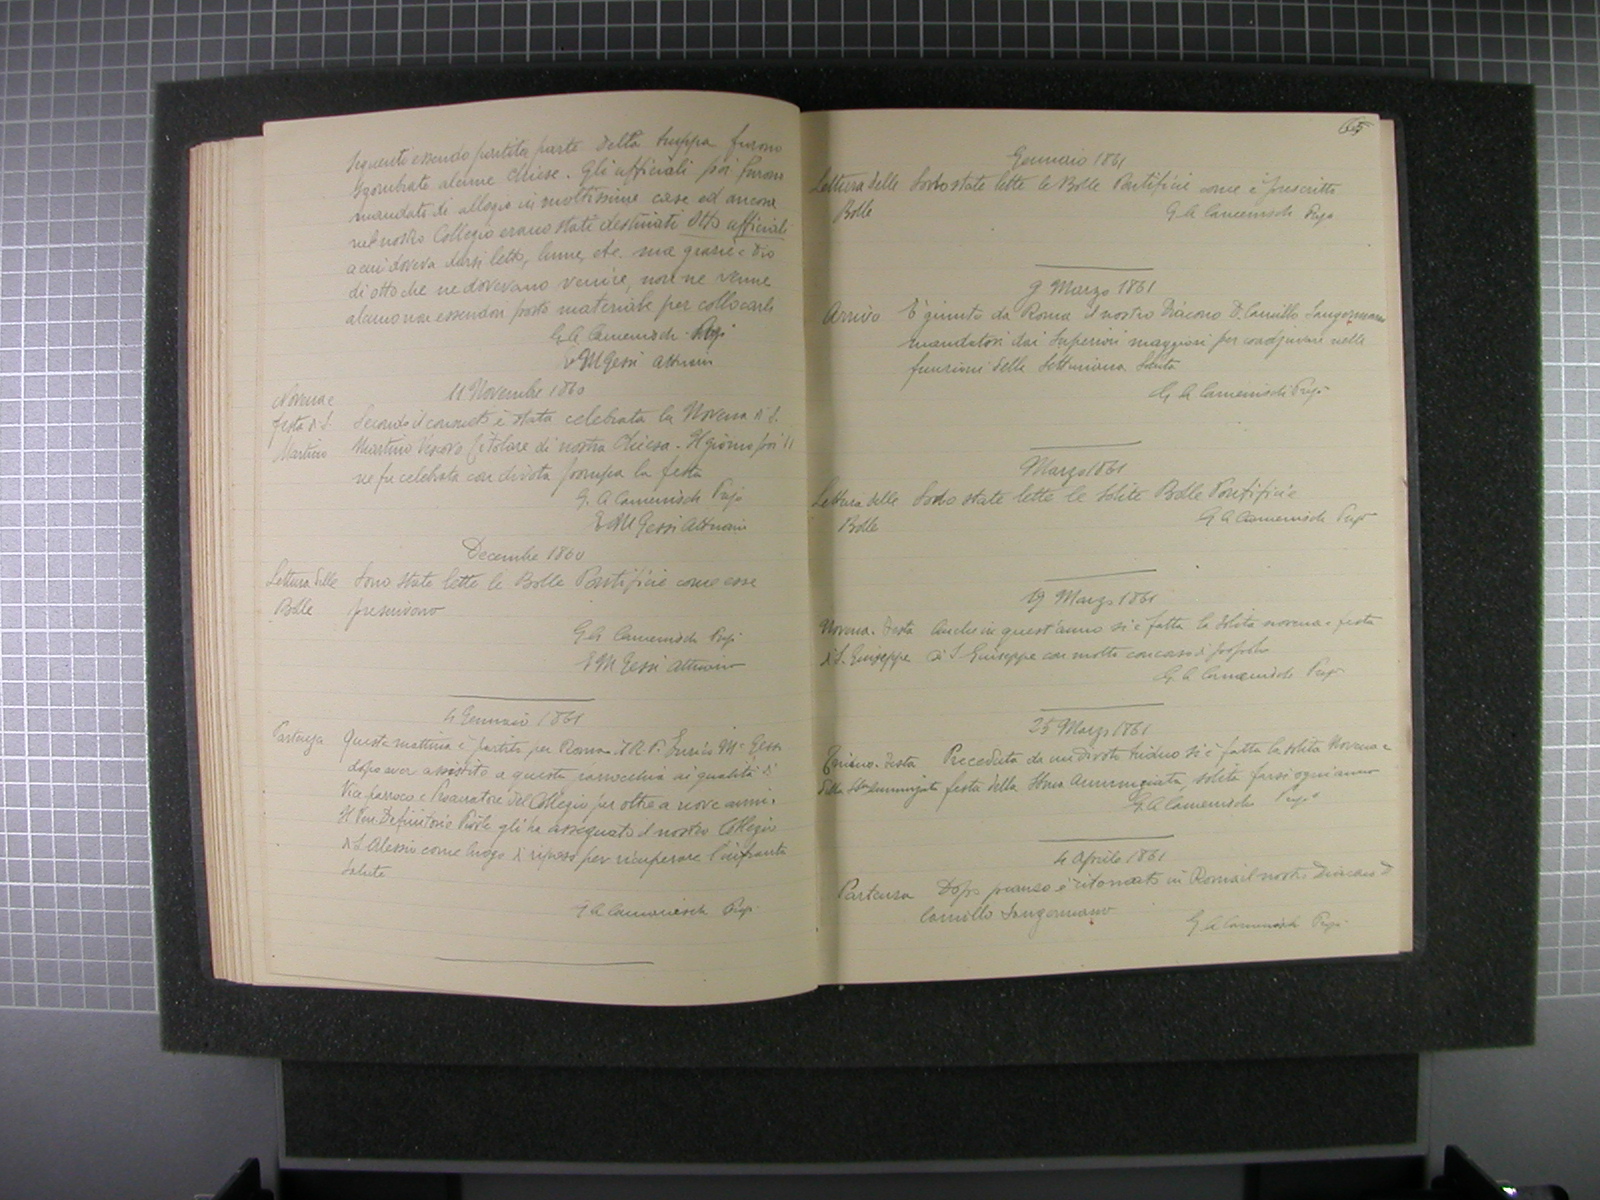 seguenti essendo partita parte della truppa furono
sgombrate alcune chiese. Gli ufficiali poi furono
mandati di alloggio in moltissime case ed ancora
nel nostro Collegio erano stati destinati otto ufficiali
a cui doveva darsi letto, lume, etc. ma grazie a Dio
di otto che ne dovevano venire, non ne venne
alcuno non essendovi posto materiale per collocarli
G. A. Camenisch Prep.
E M Gessi Attuario
11 Novembre 1860
Novena e
festa di S.
Martino
Secondo il consueto è stata celebrata la Novena di S.
Martino Vescovo Titolare di nostra Chiesa. Il giorno poi 11
ne fu celebrata con divota pompa la festa
G. A. Camenisch Prep.
E M Gessi Attuario
Decembre 1860
Lettura delle
Bolle
Sono state lette le Bolle Pontificie come esse
prescrivono
G A Camenisch Prep.
E M Gessi Attuario
4 Gennaio 1861
Partenza
Questa mattina è partito per Roma il R. P. Enrico Mª Gessi
dopo aver assistito a questa parrocchia in qualità di
Vice parroco e Procuratore del Collegio per oltre a nove anni.
Il Ven. Definitorio gli ha assegnato il nostro Collegio
di S. Alessio come luogo di riposo per ricuperare l'infranta
salute
G A Camenisch Prep.
65
Gennaio 1861
Lettura delle
Bolle
Sono state lette le Bolle Pontificie come è prescritto
G. A. Camenisch Prep.
9 Marzo 1861
Arrivo
È giunto da Roma il nostro Diacono D. Camillo Sangermano
mandatoci dai Superiori maggiori per coadjuvare nelle
funzioni della Settimana Santa
G. A. Camenisch Prep.
Marzo 1861
Lettura delle
Bolle
Sono state lette le solite Bolle Pontificie
G. A. Camenisch Prep.
19 Marzo 1861
Novena. Festa
di S. Giuseppe
Anche in quest'anno si è fatta la solita novena e festa
di S. Giuseppe con molto concorso di popolo
G. A. Camenisch Prep.
25 Marzo 1861
Triduo. Festa
della SSma Annunziata
Preceduta da un divoto triduo si è fatta la solita Novena e
festa della SSma Annunziata, solita farsi ogni anno
G. A. Camenisch Prep.
4 Aprile 1861
Partenza
Dopo pranzo è ritornato in Roma il nostro Diacono D
Camillo Sangermano
G. A. Camenisch Prep.